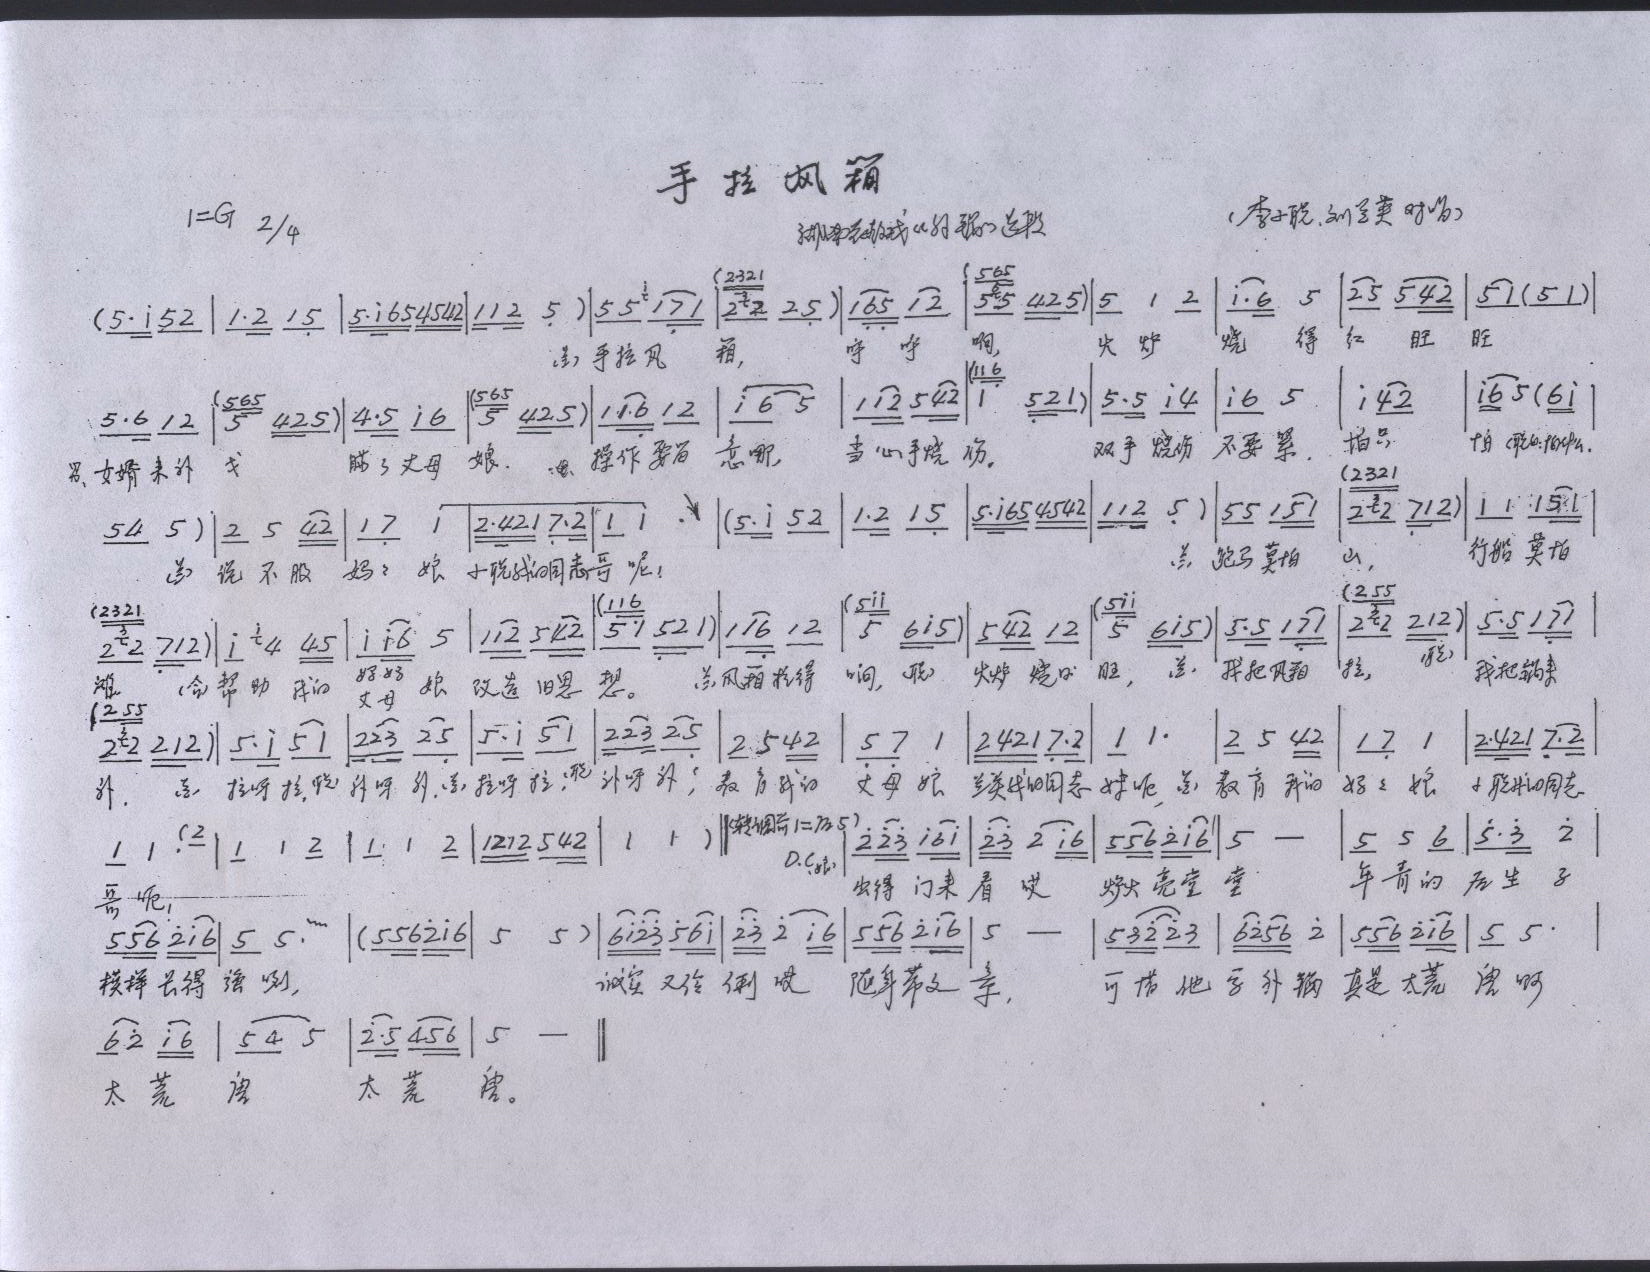 手拉风箱
1=G 2/4
湖南花鼓戏《补锅》选段
(李小聪、刘兰英对唱)
(5·i 52 | 1·2 15 | 5·i654542 | 112 5 ) | 55 i71 | 2 2 25 ) | 165 12 | 5 5 425) | 5 1 2 | i·6 5 | 25 542 | 51 (51) |
兰 手拉风 箱, 呼 呼 响, 火 炉 烧 得 红 旺 旺
5·6 12 | 5 425) | 4·5 i6 | 5 425) | 1i·6 12 | i 6 5 | 112 542 | 1 521) | 5·5 i4 | i6 5 | i 42 | i6 5 (6i |
女婿来补 瞒了丈母 娘. 操作要留 意哪, 当心手烧 伤。 双手烧伤 不要紧. 怕只 怕
54 5 ) | 2 5 42 | 17 1 | 2·421 7·2 | 1 1 · | (5·i 52 | 1·2 15 | 5·i654542 | 112 5 ) | 55 151 | 2 2 712) | 11 151 |
兰 说不服 妈妈 娘 小聪我的同志哥 呢! 兰 跑马莫怕 山, 行船莫怕
2 2 712) | i 4 45 | i i6 5 | 112 542 | 51 521) | 116 12 | 5 6i5) | 542 12 | 5 6i5) | 5·5 171 | 2 2 212) | 5·5 171 |
滩 (合) 帮助 我的 好妈 丈母 娘 改造旧思 想。 兰 风箱拉得 响, 聪 火炉烧得 旺, 兰 我把风箱 拉, 聪 我把锅来
2 2 212) | 5·i 51 | 223 25 | 5·i 51 | 223 25 | 2 5 42 | 5 7 1 | 2421 7·2 | 1 1· | 2 5 42 | 17 1 | 2·421 7·2 |
补. 兰 拉呀拉, 聪 补呀补, 兰 拉呀拉, 聪 补呀补; 教育我的 丈母 娘 兰英我的同志 妹呢, 兰 教育我的 妈妈 娘 小聪我的同志
1 1 · (2 | 1 1 2 | 1· 1 2 | 1212 542 | 1 1 ) ‖ (转调前1=后5) D.C. 223 i6i | 23 2 i6 | 556 2i6 | 5 — | 5 5 6 | 5·3 2 |
哥 呢! 出得 门来 看 哎 炉火 亮堂 堂 年青的 后生 子
556 2i6 | 5 5· | (5562i6 | 5 5 ) | 6i23 56i | 23 2 i6 | 556 2i6 | 5 — | 53223 | 6256 2 | 556 2i6 | 5 5· |
模样长得 强 咧, 诚实又伶 俐 哎 随身带文 章, 可惜他 学补锅 真是太荒 唐 啊
62 i6 | 54 5 | 2·5 456 | 5 — ‖
太荒 唐 太荒 唐。